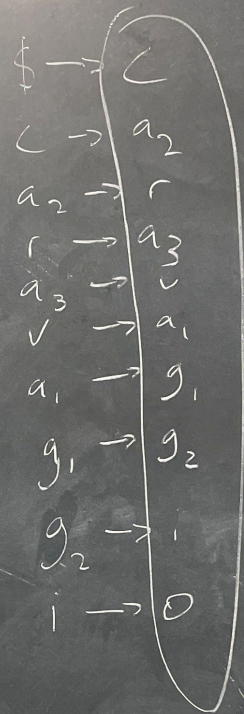 $ → c
c → a₂
a₂ → r
r → a₃
a₃ → v
v → a₁
a₁ → g₁
g₁ → g₂
g₂ → i
i → o